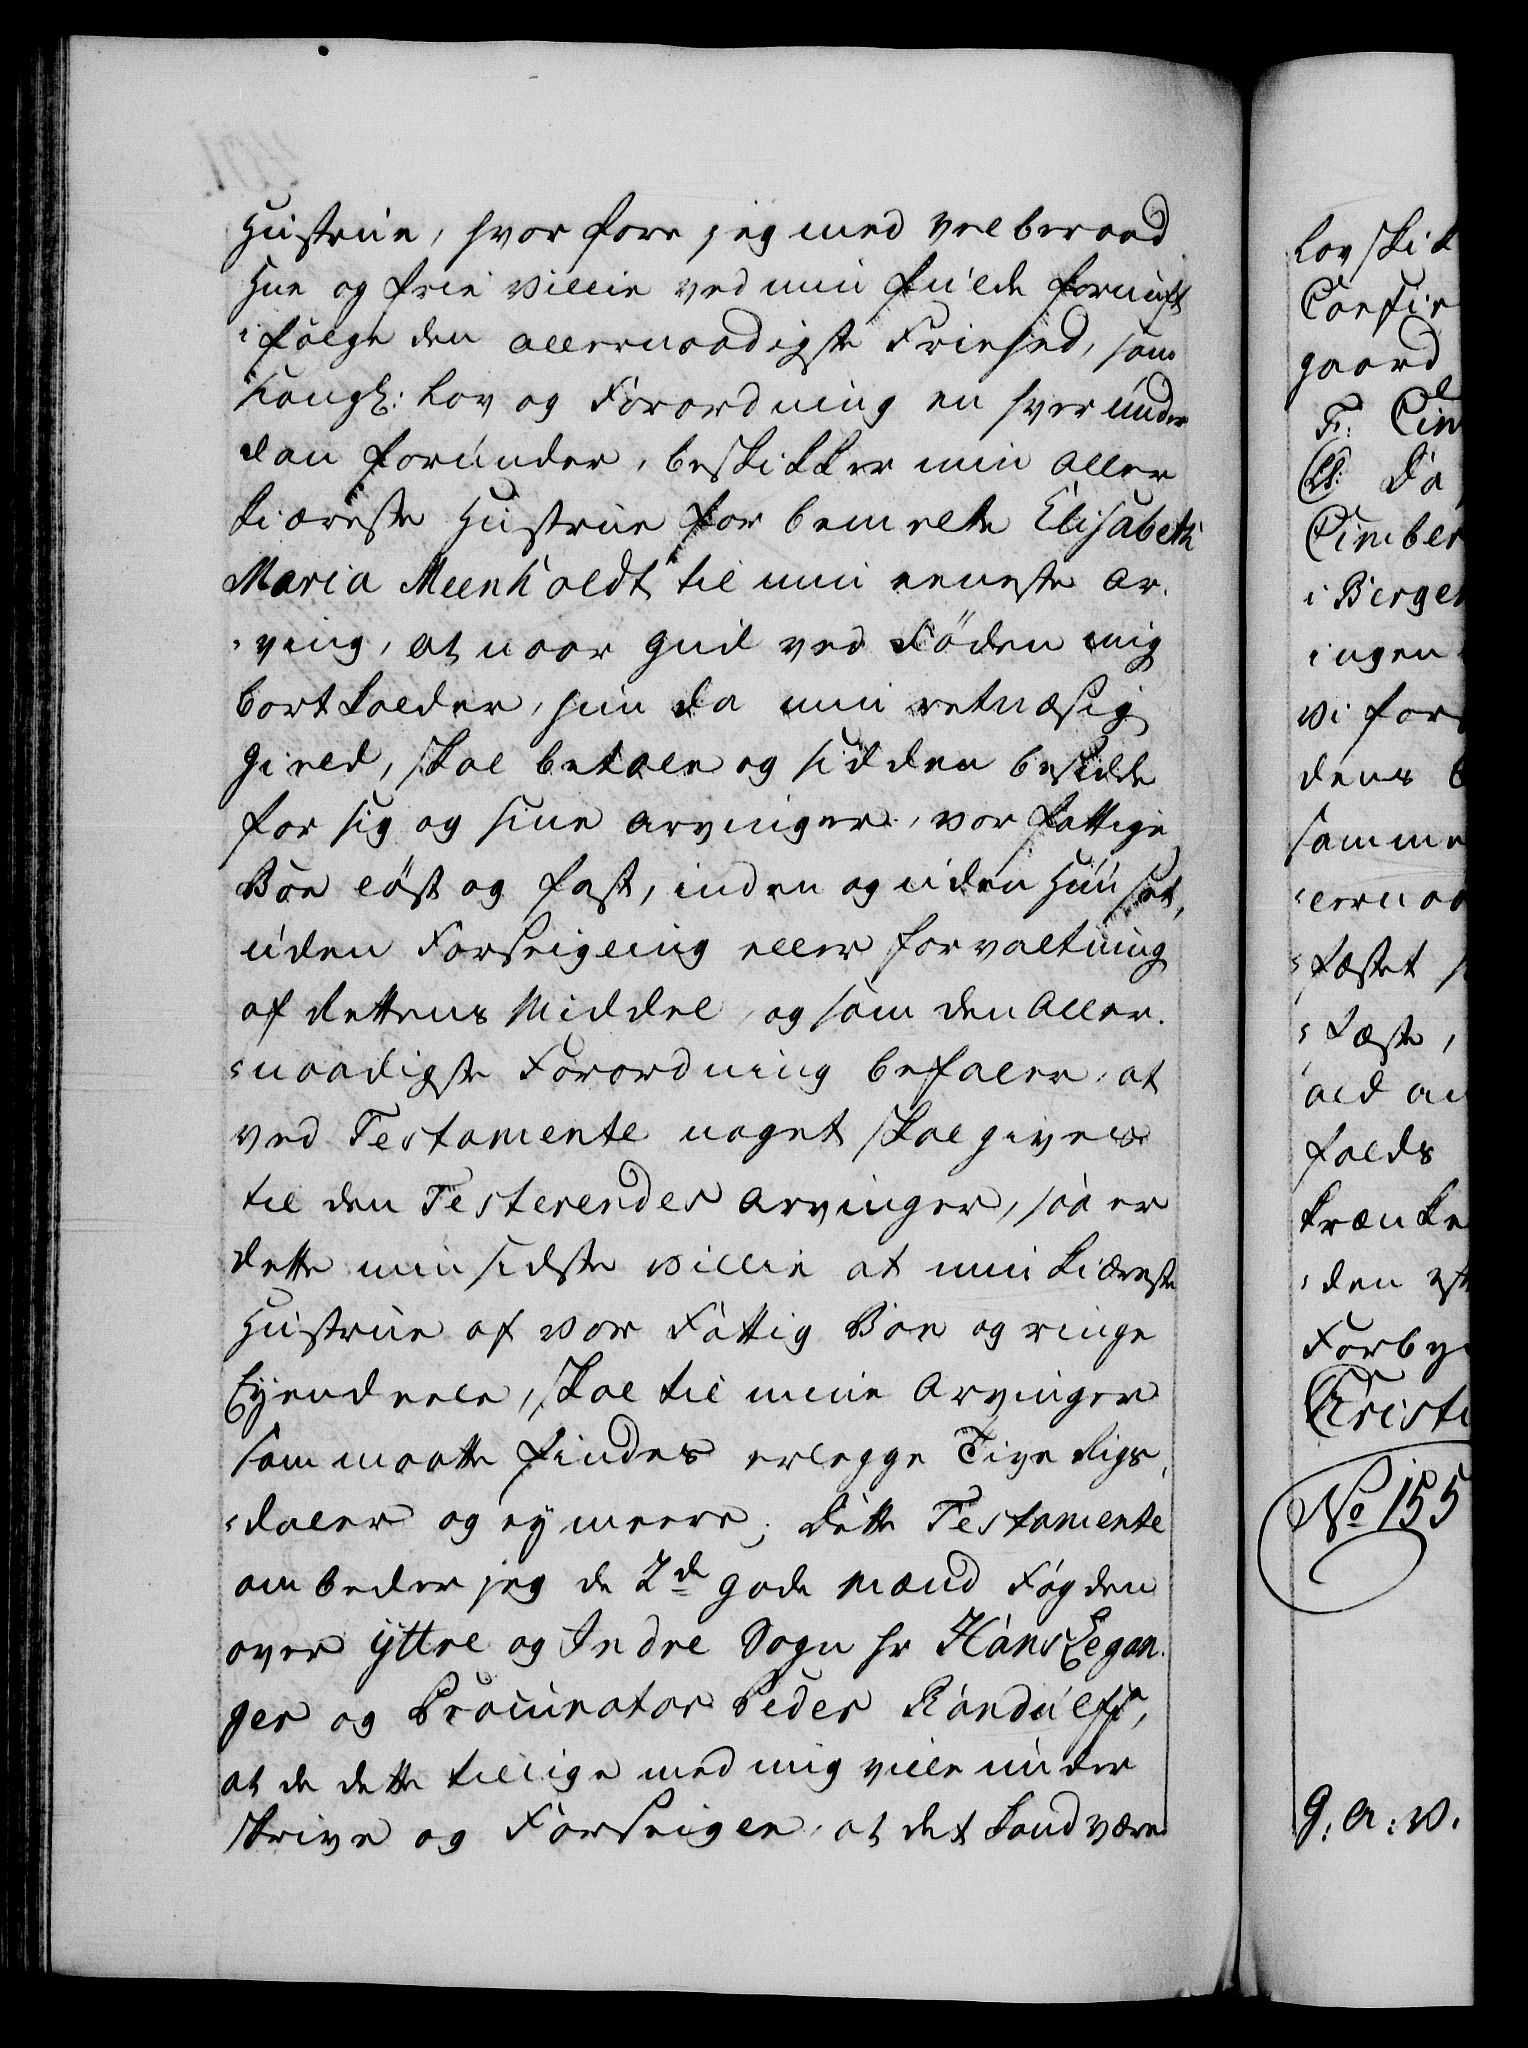 Hustrue, hvor fore jeg med vel beraad
Hue og frie villie ved min fulde fornuft
i følge den allernaadigste Friehed, som
Kongl: Lov og Forordning en hver under
dan forunder, beskikker min aller
kiæreste Hustrue for bemelte Elisabeth
Maria Meenholdt til min eeneste Ar¬
¬ving, at naar Gud ved Döden mig
bortkalder, hun da min retmæsig
Gield, skal betale og sidden besidde
for sig og sine Arvinger, vor fattige
Boe löst og fast, inden og uden Huuset,
uden Forseigling eller forvaltning
af Rettens Middel, og som den Aller¬
¬naadigste Forordning befaler, at
ved Testamente noget skal gives
til den Testerendes Arvinger, saa er
dette min sidste villie at min kiæreste
Hustrue af vor Fattig Boe og ringe
Eyendeele, skal til mine Arvinger
som maatte findes erlegge Tive Rigs¬
¬daler og ey meere; Dette Testamente
ombeder jeg de 2de gode Mænd Fogden
over Yttre og Indre Sogn Hr Hans Legan¬
ger og Procurator Peder Randulff,
at de dette tillige med mig ville under
skrive og Forseigle, at det kand være
Lov skik
Confir
gaard
F: Cim
Cl: Da
Cimber
i Bergen
ingen
vi for
dens
samme
¬lernaa
¬fæstet
¬fæste,
ald an
falds
krænke
¬den ef
Forby
Christi
No 155
G. A. V.